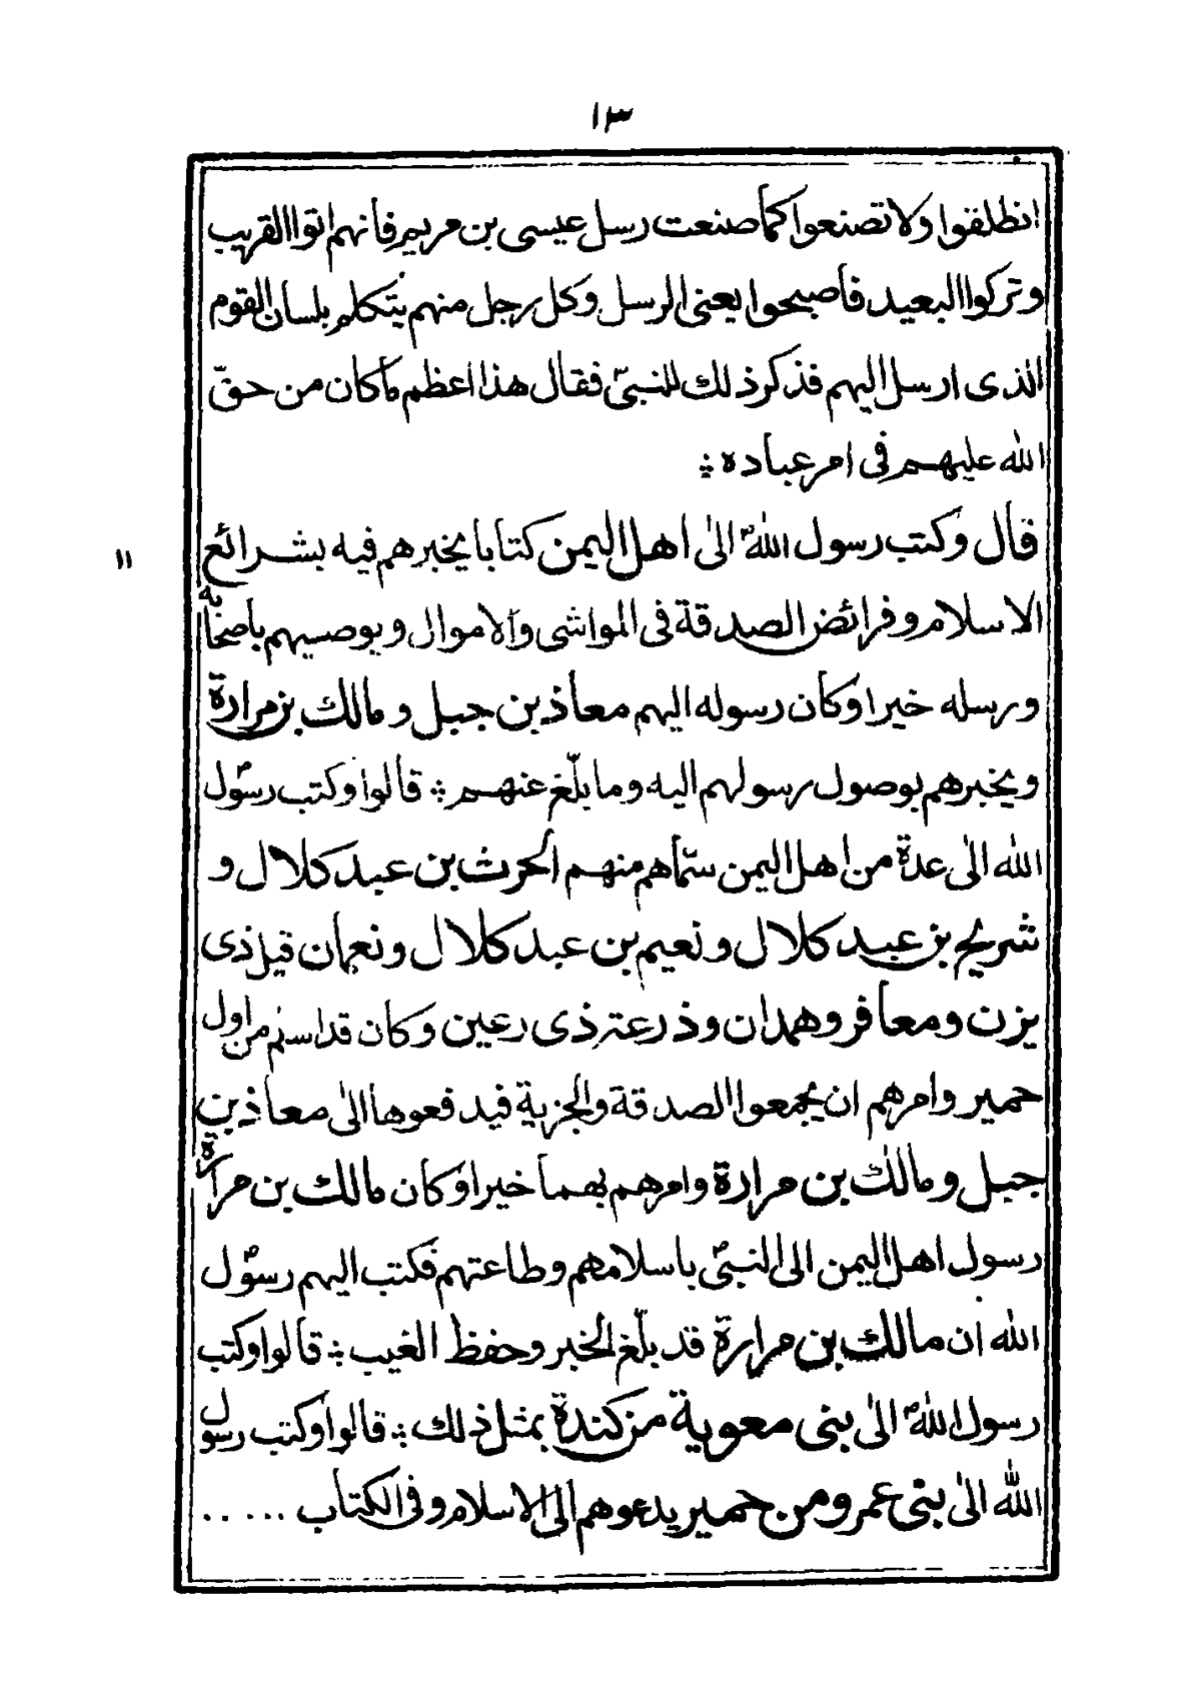 ١٣
انطلقوا ولا تصنعوا كما صنعت رسل عيسى بن مريم فانهم اتوا القريب
وتركوا البعيد فأصبحوا يعنى الرسل وكل رجل منهم يتكلم بلسان القوم
الذى ارسل اليهم فذكر ذلك للنبىؐ فقال هذا اعظم ما كان من حقّ
الله عليهم فى امر عباده ؞
١١
قال وكتب رسول اللهؐ الىٰ اهل اليمن كتابا يخبرهم فيه بشرائع
الاسلام وفرائض الصدقة فى المواشى والاموال ويوصيهم بأصحابه
ورسله خيرا وكان رسوله اليهم معاذ بن جبل ومالك بن مرارة
ويخبرهم بوصول رسولهم اليه وما بلّغ عنهم ؞ قالوا وكتب رسولؐ
الله الىٰ عدة من اهل اليمن سمّاهم منهم الحرث بن عبد كلال و
شريح بن عبد كلال ونعيم بن عبد كلال ونعمان قيل ذى
يزن ومعافر وهمدان وذرعته ذى رعين وكان قد اسلم من اول
حمير وامرهم ان يجمعوا الصدقة والجزية فيدفعوها الىٰ معاذ بن
جبل ومالك بن مرارة وامرهم بهما خيرا وكان مالك بن مرارة
رسول اهل اليمن الى النبىؐ باسلامهم وطاعتهم فكتب اليهم رسولؐ
الله ان مالك بن مرارة قد بلّغ الخبر وحفظ الغيب ؞ قالوا وكتب
رسول اللهؐ الىٰ بنى معوية من كندة بمثل ذلك ؞ قالوا وكتب رسول
الله الىٰ بنى عمرو من حمير يدعوهم الى الاسلام وفى الكتاب . . . . .